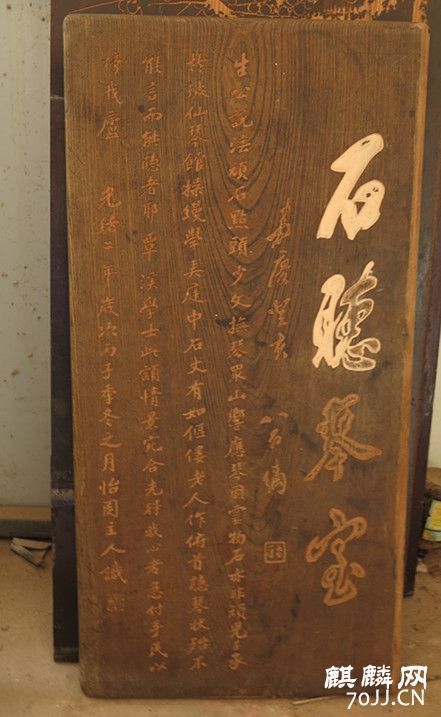 石聽琴室
生公說法頑石點頭少文撫琴眾山響應琴固靈物石亦非頑兒子承
於坡仙琴館操縵學弄庭中石丈有如傴僂老人作俯首聽琴狀殆不
能言而能聽者耶覃溪學士此額情景宛合先得我心者急付手民以
榜我廬 光緒二年歲次丙子季冬之月怡園主人識
麒麟网
70JJ.CN